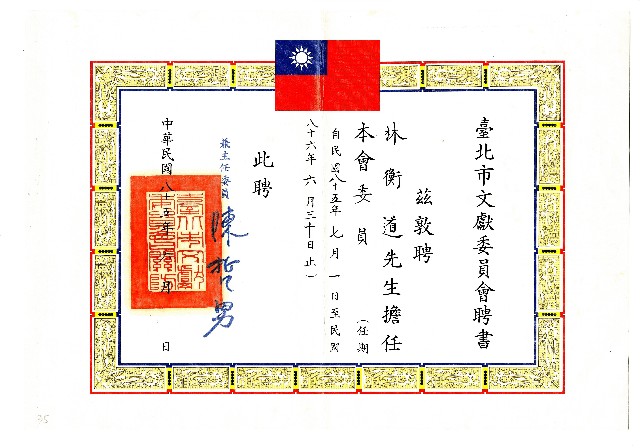 臺北市文獻委員會聘書
茲敦聘
林衡道先生擔任
本會委員（任期
自民國八十五年七月一日至民國
八十六年六月三十日止）
此聘
兼主任委員 陳哲男
中華民國八十五年 月 日
35